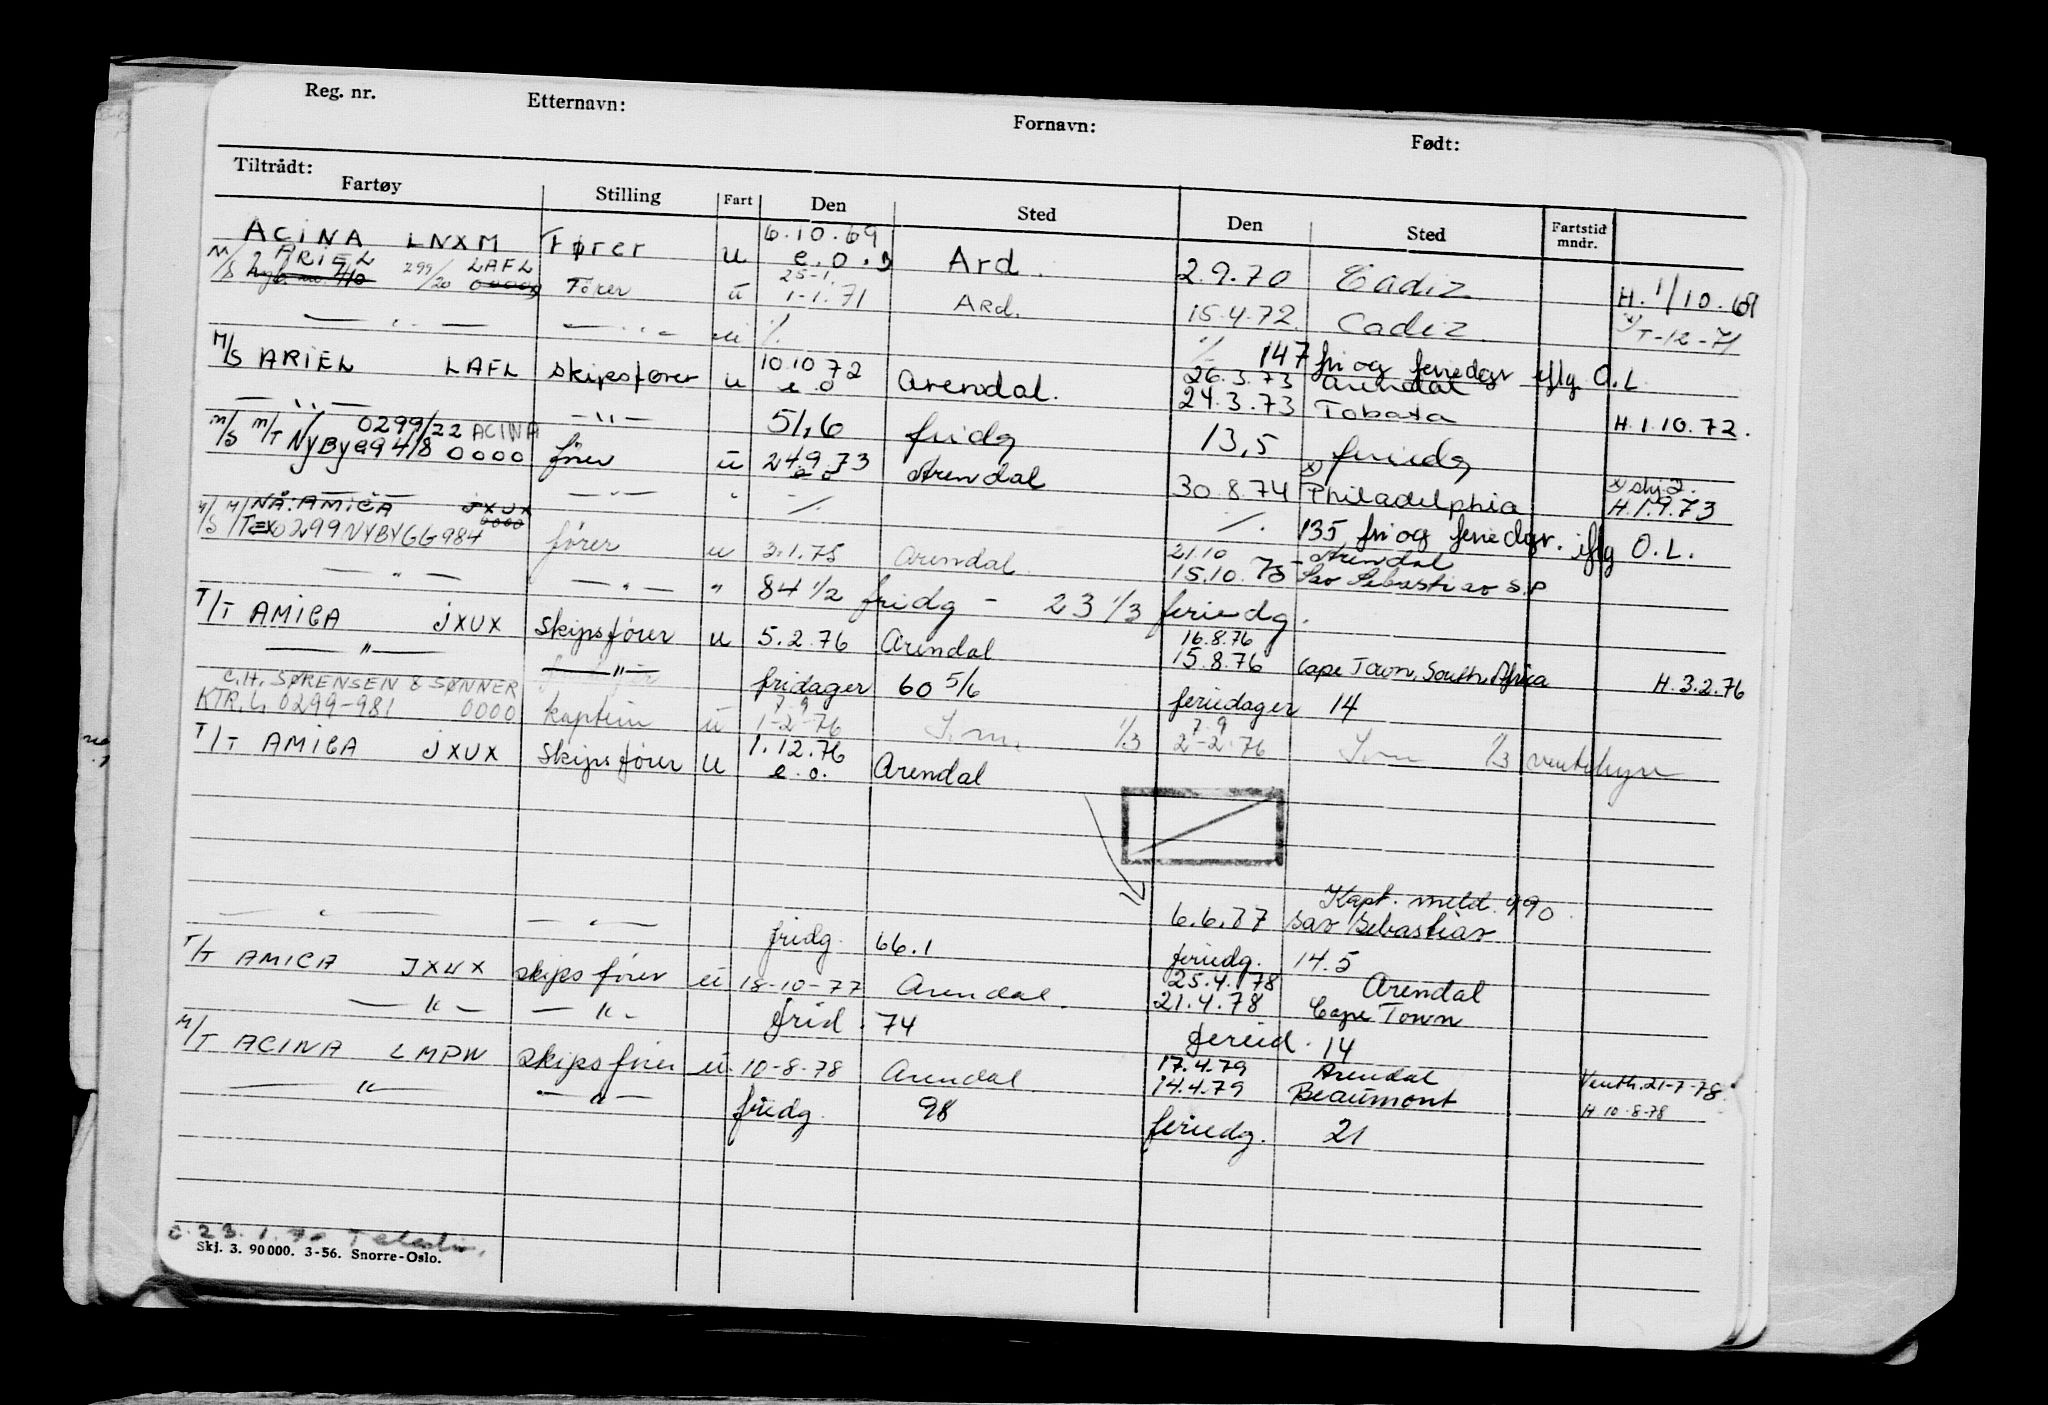 Reg. nr. Etternavn: Fornavn: Født:
Tiltrådt:
Fartøy Stilling Fart Den Sted Den Sted Fartstid mndr.
ACINA LNXM Fører u 6.10.69 e.o. Ard. 2.9.70 Cadiz H. 1/10.69
M/S ARIEL 299/20 LAFL 0000 Fører ü 25-1 1-1.71 ARD. 15.4.72 Cadiz x) T-12-71
— " — — " — ü % % 147 fri og feriedgr iflg O.L
M/S ARIEL LAFL Skipsfører u 10.10 72 e.o Arendal. 26.3.73 Arendal
— " — — " — 24.3.73 Tobata H.1.10.72.
51,6 fridg 13,5 feriedg
M/S M/T 0299/22 ACINA
Nybyg 948 0000 fører ü 24.9.73 e.o Arendal 30.8.74 x) Philadelphia x) skj.2. H.1.9.73
— " — — " — " % % 135 fri og feriedgr. iflg O.L.
NÅ: AMICA JXUX 0000
M/S M/T EX 0299 NYBYGG 984 fører u 2.1.75 Arendal 21.10 Arendal
— " — — " — " 15.10.75 Sao Sebastiao S.P
84 1/2 fridg - 23 1/3 feriedg.
T/T AMICA JXUX Skipsfører u 5.2.76 Arendal 16.8.76
— " — — " — 15.8.76 Cape Town, South Africa H.3.2.76
fridager 60 5/6 feriedager 14
C.H. SØRENSEN & SØNNER
KTR. L. 0299-981 0000 kaptein ü 7-9 1-2-76 1/3 7-9 2-2-76 1/3 ventehyre
T/T AMICA JXUX Skipsfører u 1.12.76 e.o. Arendal
Kapt. meld. 990
— " — — " — 6.6.77 Sao Sebastiao
fridg. 66.1 feriedg. 14.5
T/T AMICA JXUX skipsfører ü 18-10-77 Arendal. 25.4.178 Arendal
— " — — " — 21.4.78 Cape Town
frid. 74 fereid. 14
M/T ACINA LMPW Skipsfører ü 10-8-78 Arendal 17.4.79 Arendal Venth.21-7-78.
— " — — " — 14.4.79 Beaumont H 10-8-78
friedg. 98 feriedg. 21
23.1.7
Skj. 3. 90000. 3-56. Snorre-Oslo.